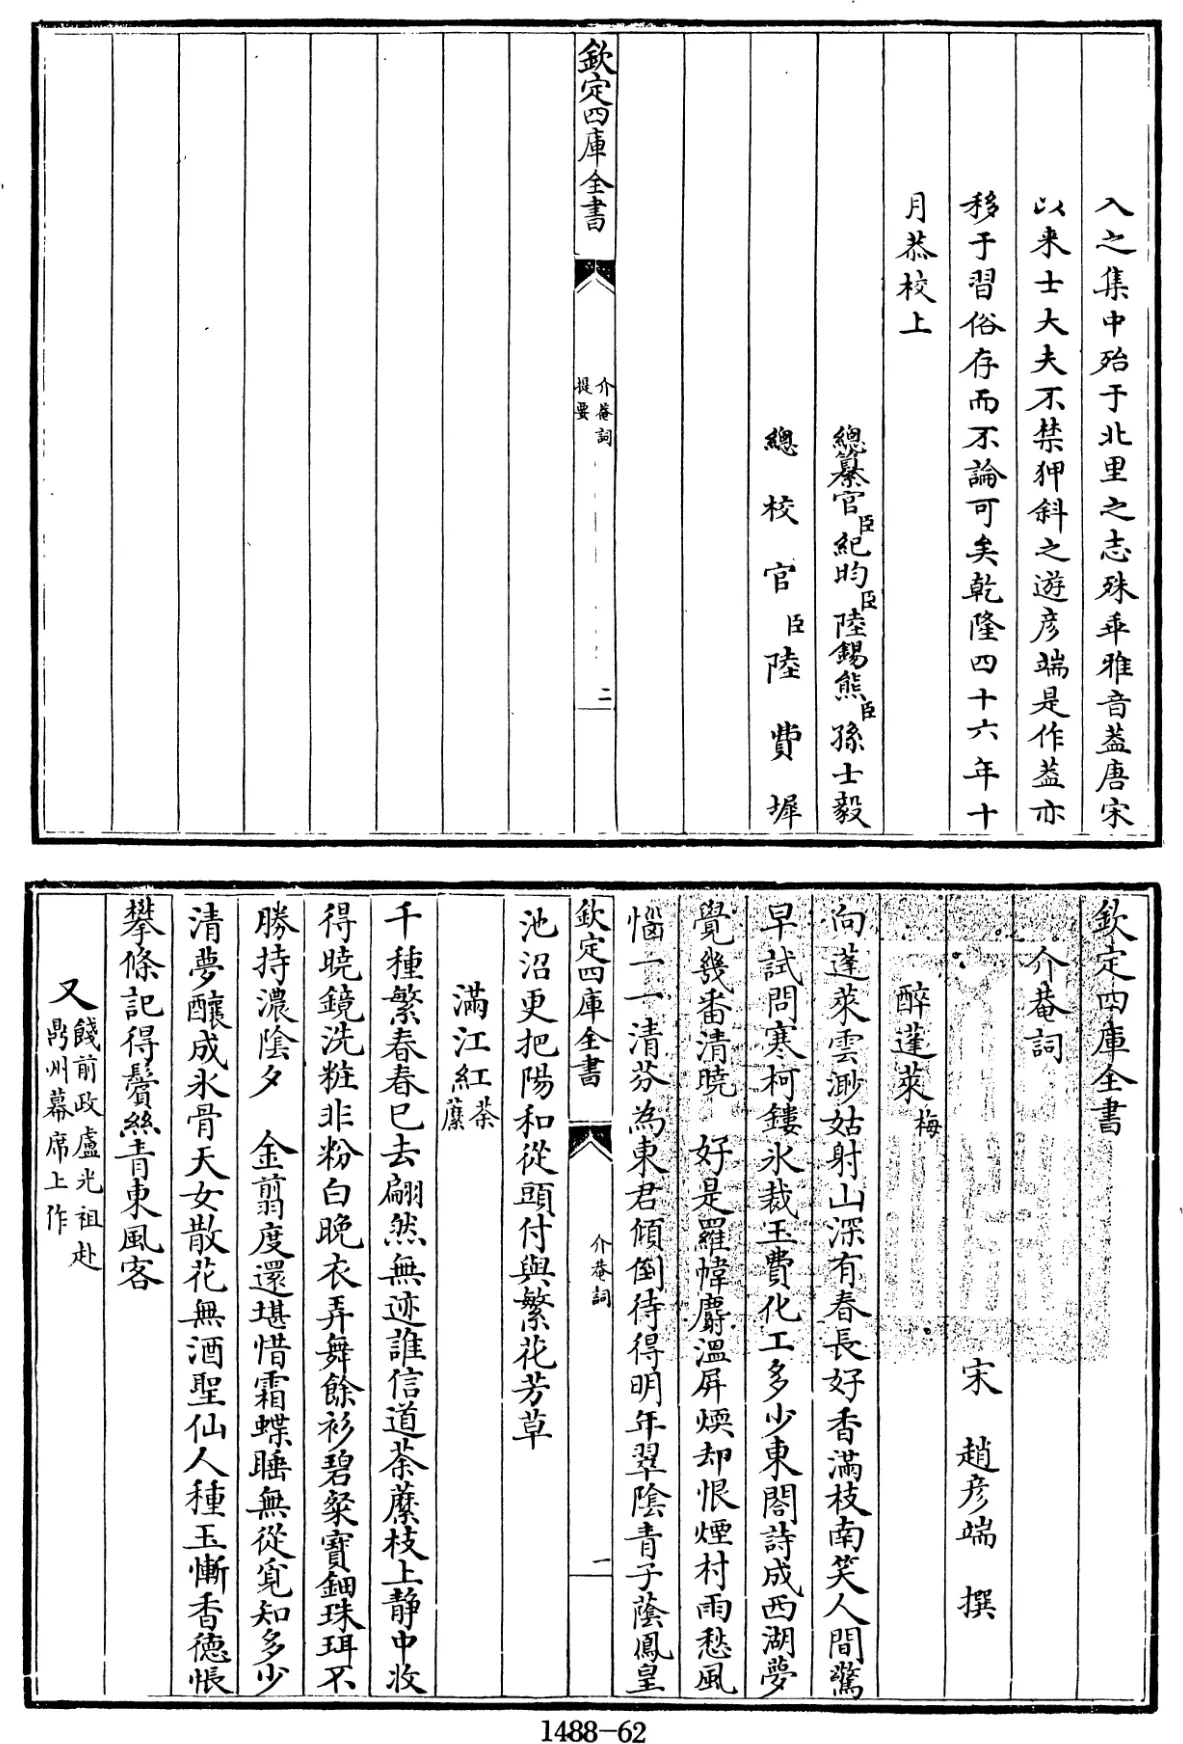 入之集中殆于北里之志殊乖雅音葢唐宋
以来士大夫不禁狎斜之遊彦端是作葢亦
移于習俗存而不論可矣乾隆四十六年十
月恭校上
總纂官臣紀昀臣陸錫熊臣孫士毅
總校官臣陸費墀
欽定四庫全書
介菴詞
提要
二
欽定四庫全書
介菴詞
宋 趙彦端 撰
醉蓬萊梅
向蓬萊雲渺姑射山深有春長好香滿枝南笑人間驚
早試問寒柯鏤氷裁玉費化工多少東閣詩成西湖夢
覺幾番清曉 好是羅幃麝溫屏煗却恨煙村雨愁風
惱一一清芬為東君傾倒待得明年翠陰青子蔭鳳皇
欽定四庫全書
介菴詞
一
池沼更把陽和從頭付與繁花芳草
滿江紅荼䕷
千種繁春春已去翩然無迹誰信道荼䕷枝上静中收
得曉鏡洗粧非粉白晚衣弄舞餘衫碧粲寶鈿珠珥不
勝持濃陰夕 金翦度還堪惜霜蝶睡無從覓知多少
清夢釀成氷骨天女散花無酒聖仙人種玉慚香德悵
攀條記得鬢絲青東風客
又餞前政盧光祖赴
鼎州幕席上作
1488-62